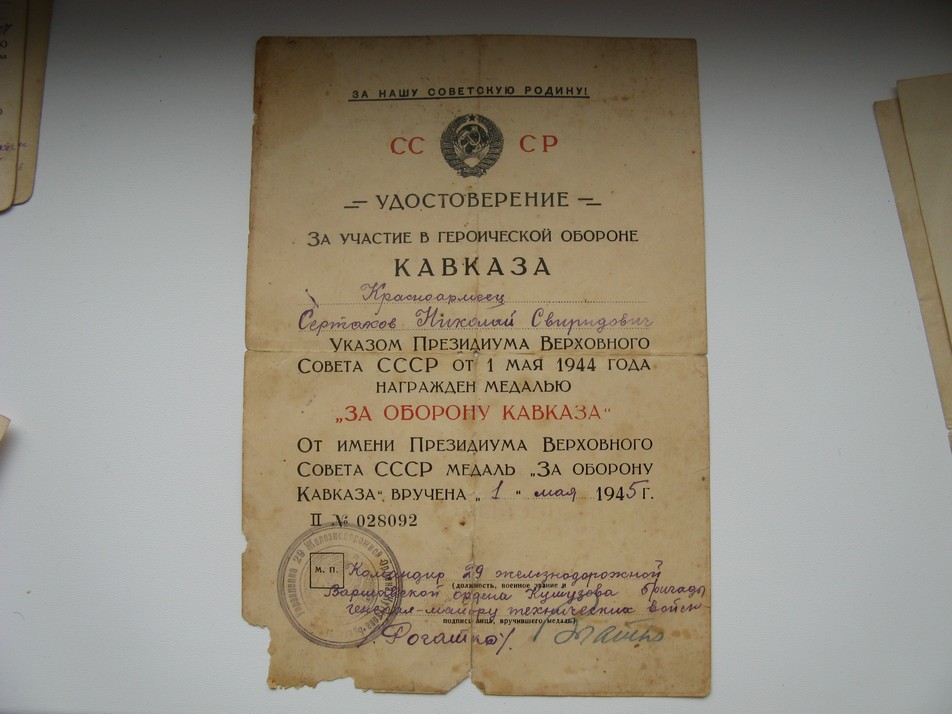 ЗА НАШУ СОВЕТСКУЮ РОДИНУ!
СС СР
УДОСТОВЕРЕНИЕ
ЗА УЧАСТИЕ В ГЕРОИЧЕСКОЙ ОБОРОНЕ
КАВКАЗА
Красноармеец
Сертаков Николай Свиридович
УКАЗОМ ПРЕЗИДИУМА ВЕРХОВНОГО
СОВЕТА СССР ОТ 1 МАЯ 1944 ГОДА
НАГРАЖДЕН МЕДАЛЬЮ
„ЗА ОБОРОНУ КАВКАЗА“
ОТ ИМЕНИ ПРЕЗИДИУМА ВЕРХОВНОГО
СОВЕТА СССР МЕДАЛЬ „ЗА ОБОРОНУ
КАВКАЗА“ ВРУЧЕНА „1“ мая 1945 г.
II № 028092
М. П.
Командир 29 железнодорожной
(должность, военное звание и
Варшавской ордена Кутузова бригады
генерал-майор технических войск
подпись лица, вручившего медаль)